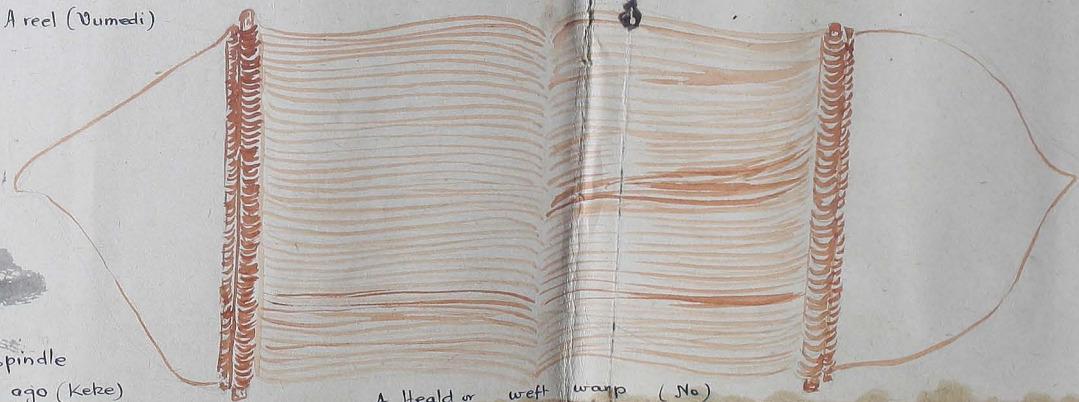 A reel (Vumedi)
spindle
ago (Keke)
A Heald or weft warp (No)